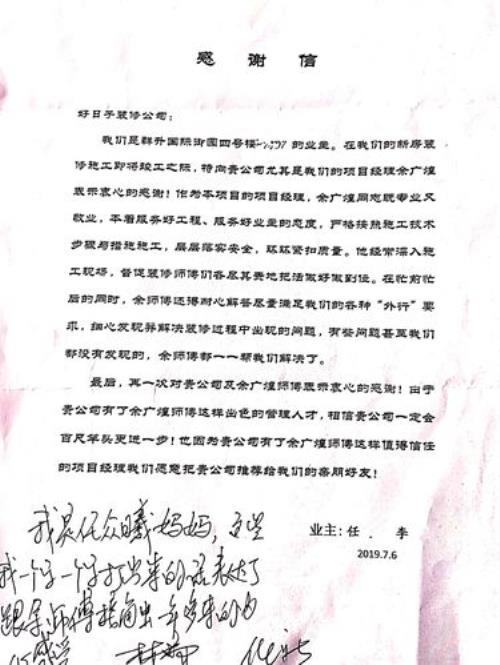 感谢信
好日子装修公司：
我们是群升国际御园四号楼 的业主。在我们的新房装
修施工即将竣工之际，特向贵公司尤其是我们的项目经理余广煌
表示衷心的感谢！作为本项目的项目经理，余广煌同志既专业又
敬业，本着服务好工程、服务好业主的态度，严格按照施工技术
步骤与措施施工，层层落实安全，环环紧扣质量。他经常深入施
工现场，督促装修师傅们各尽其责地把活做好做到位。在忙前忙
后的同时，余师傅还得耐心解答尽量满足我们的各种“外行”要
求，细心发现并解决装修过程中出现的问题，有些问题甚至我们
都没有发现的，余师傅都一一帮我们解决了。
最后，再一次对贵公司及余广煌师傅表示衷心的感谢！由于
贵公司有了余广煌师傅这样出色的管理人才，相信贵公司一定会
百尺竿头更进一步！也因为贵公司有了余广煌师傅这样值得信任
的项目经理我们愿意把贵公司推荐给我们的亲朋好友！
业主：任 . 李
2019.7.6
我是任众曦妈妈，这些
我一个字一个字打出来的话表达了
跟余师傅接触出一年多来的